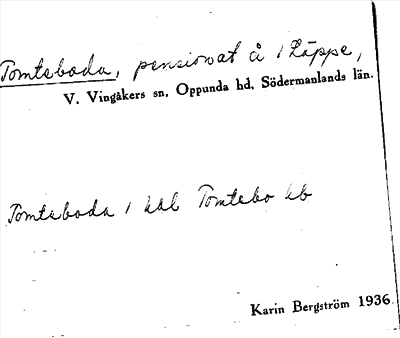 Tomteboda, pensionat å 1 Läppe,
V. Vingåkers sn, Oppunda hd, Södermanlands län.
Tomteboda 1 kal Tomtebo kb
Karin Bergström 1936.